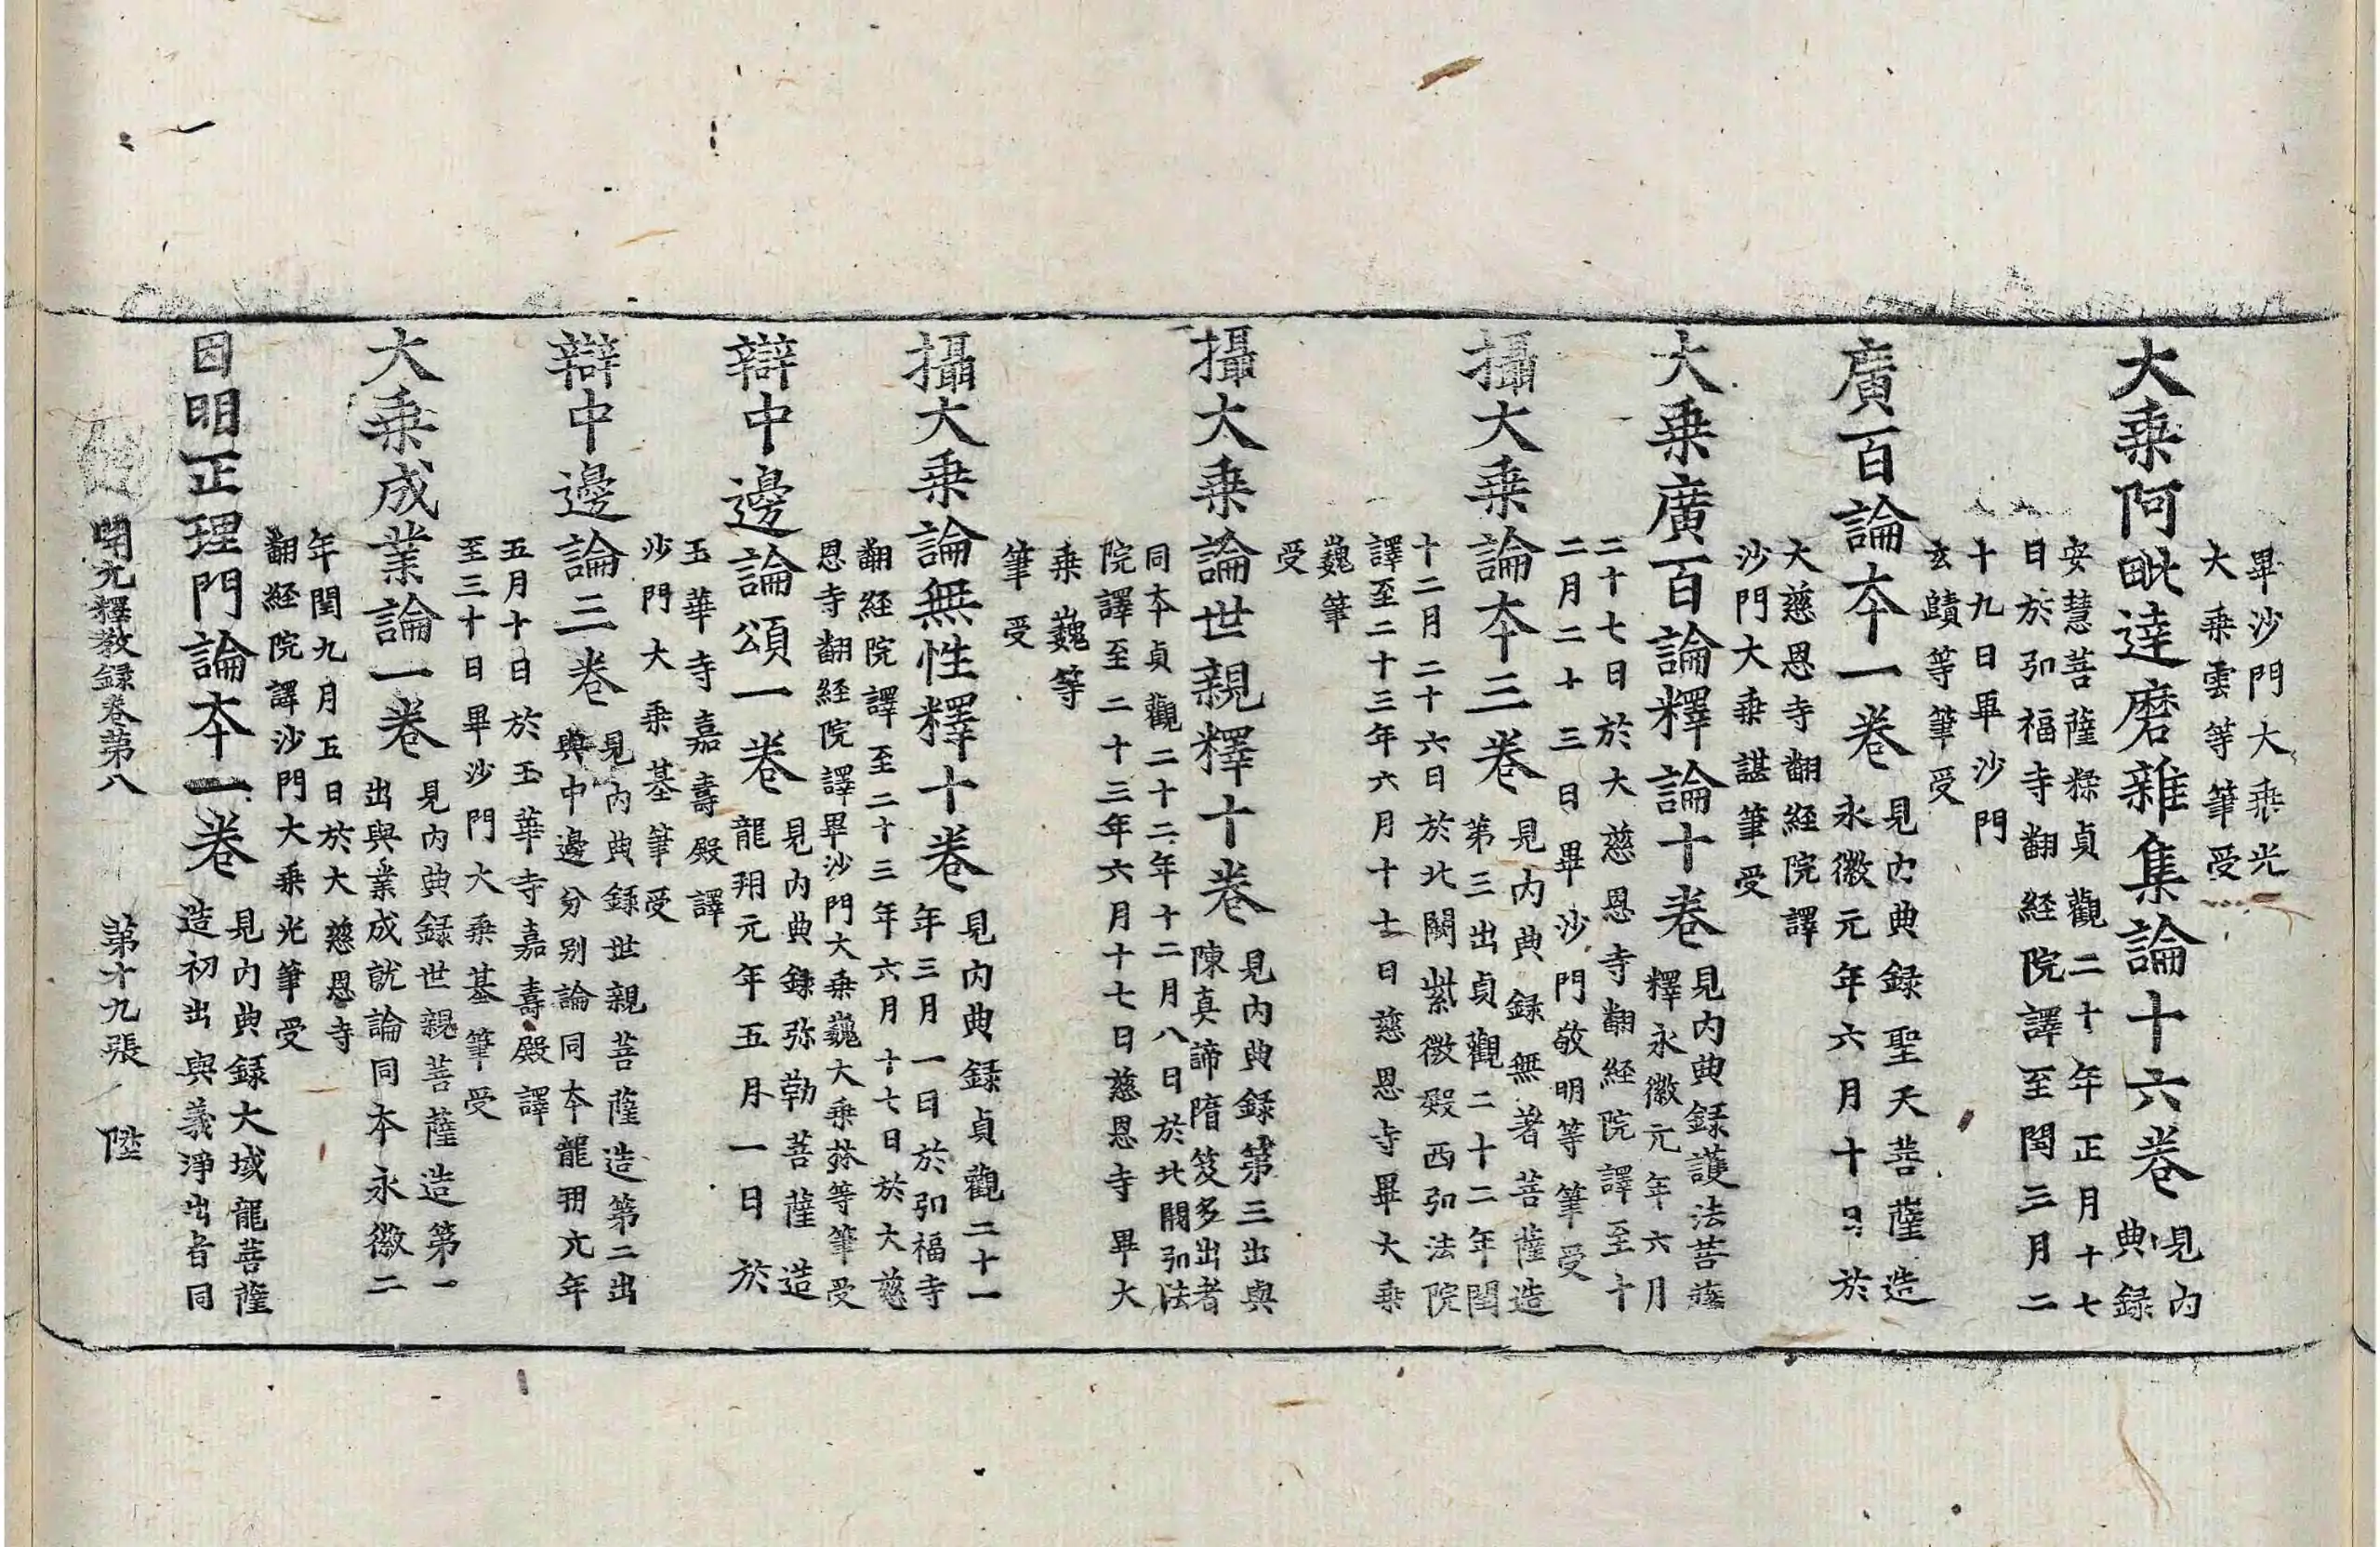 畢沙門大乘光
大乘雲等筆受
大乘阿毗達磨雜集論十六卷見内
典録
安慧菩薩糅貞觀二十年正月十七
日於弘福寺翻経院譯至閏三月二
十九日畢沙門
玄賾等筆受
廣百論本一卷見内典録聖天菩薩造
永徽元年六月十日於
大慈恩寺翻経院譯
沙門大乘諶筆受
大乘廣百論釋論十卷見内典録護法菩薩
釋永徽元年六月
二十七日於大慈恩寺翻経院譯至十
二月二十三日畢沙門敬明等筆受
攝大乘論本三卷見内典録無著菩薩造
第三出貞觀二十二年閏
十二月二十六日於北闕紫微殿西弘法院
譯至二十三年六月十七日慈恩寺畢大乘
巍筆
受
攝大乘論世親釋十卷見内典録第三出與
陳真諦隋笈多出者
同本貞觀二十二年十二月八日於北闕弘法
院譯至二十三年六月十七日慈恩寺畢大
乘巍等
筆受
攝大乘論無性釋十卷見内典録貞觀二十一
年三月一日於弘福寺
翻経院譯至二十三年六月十七日於大慈
恩寺翻経院譯畢沙門大乘巍大乘林等筆受
辯中邊論頌一卷見内典録弥勒菩薩造
龍朔元年五月一日於
玉華寺嘉壽殿譯
沙門大乘基筆受
辯中邊論三卷見内典録世親菩薩造第二出
與中邊分别論同本龍朔元年
五月十日於玉華寺嘉壽殿譯
至三十日畢沙門大乘基筆受
大乘成業論一卷見内典録世親菩薩造第一
出與業成就論同本永徽二
年閏九月五日於大慈恩寺
翻経院譯沙門大乘光筆受
因明正理門論本一卷見内典録大域龍菩薩
造初出與義淨出者同
開元釋教録卷第八　第十九張　陞